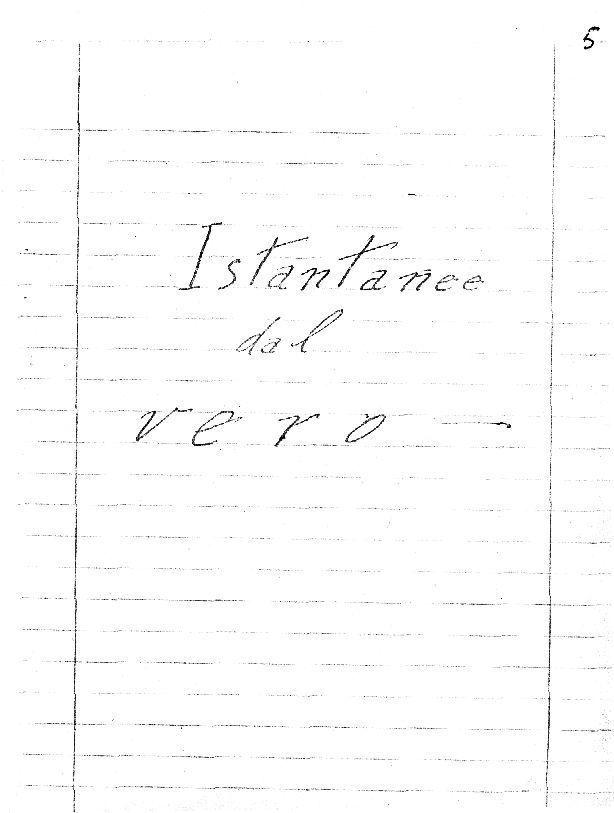 5
Istantanee
dal
vero —